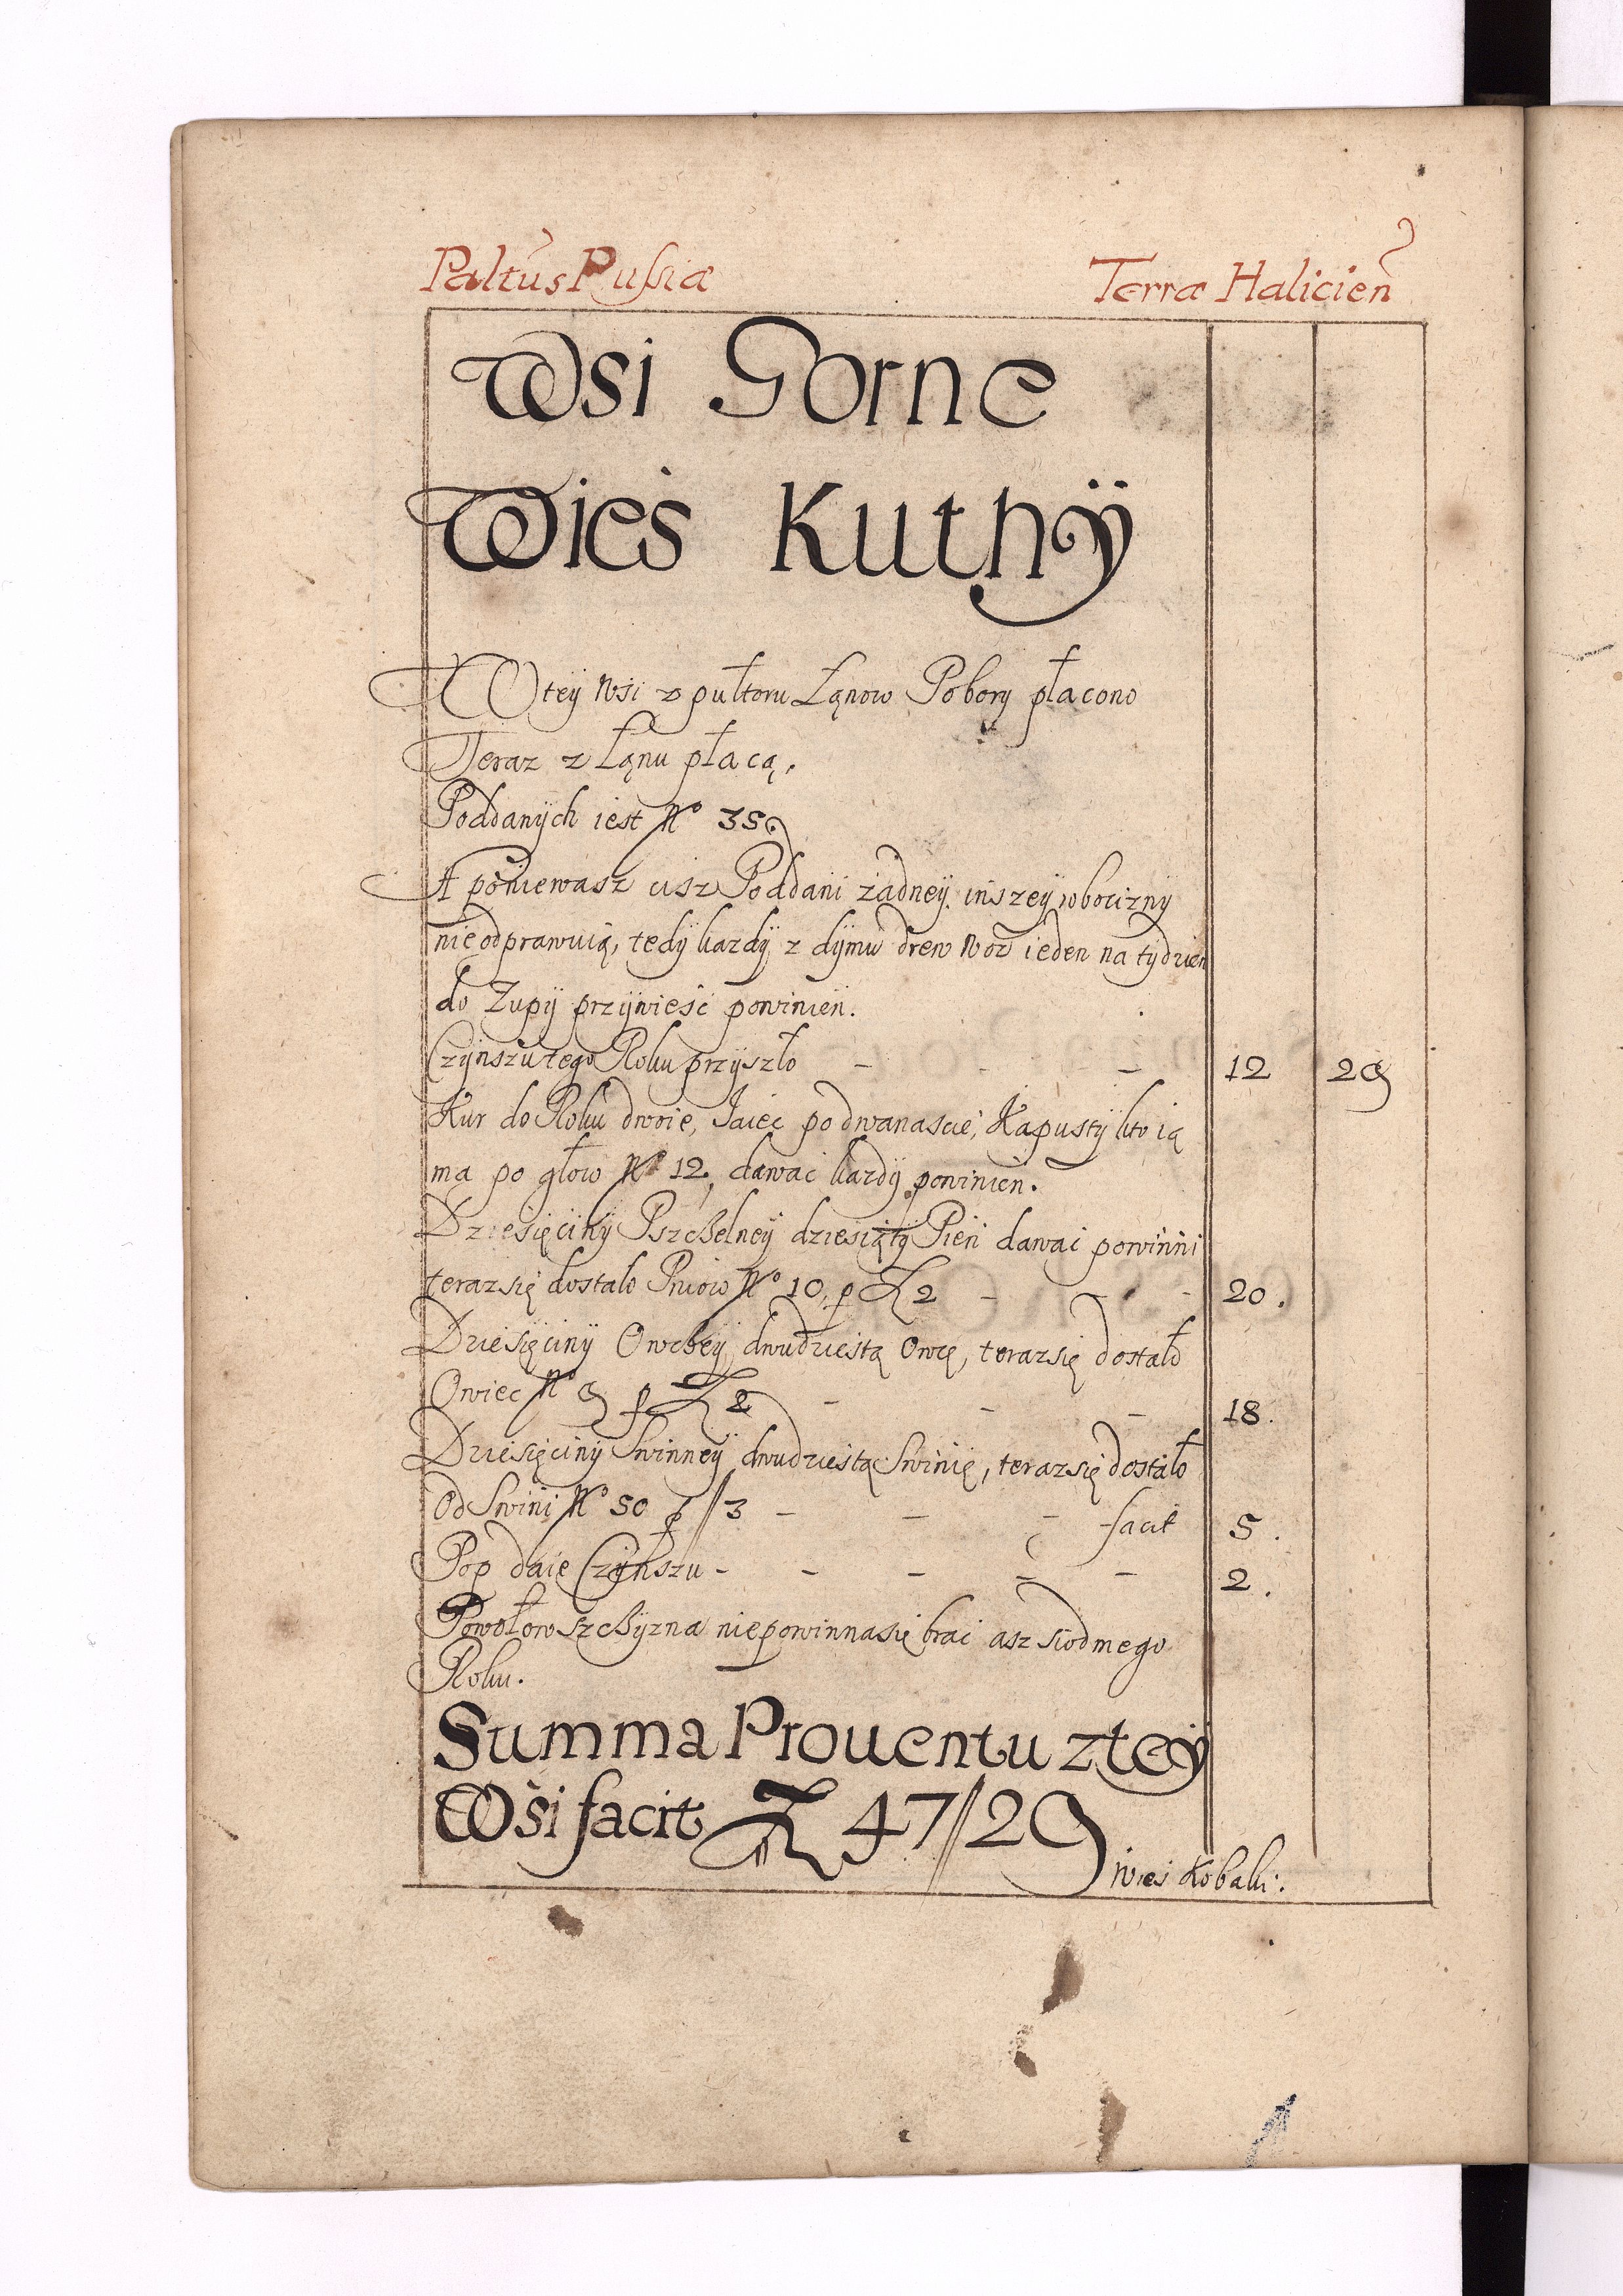 Paltus Rusiæ Terræ Halicien
Wsi Gorne
Wieś Kuthÿ
W teÿ Wsi z pułtoru Łąnow Pobory płacono
Teraz z Łąnu płacą.
Poddanÿch iest No 35
A poniewasz cisz Poddani żadneÿ inszeÿ robocizny
nie odprawuią, tedÿ każdÿ z dÿmu drew Woz ieden na tÿdzien
do Zupÿ przÿwieść powinien.
Czÿnszu tego Roku przÿszło - - - 12 29
Kur do Roku dwoie, Jaiec po dwanascie, Kapustÿ kto ią
ma po głow No 12, dawać każdÿ powinien.
Dziesięcinÿ Pszczelneÿ dziesiątÿ Pień dawać powinni
teraz się dostało Pniow No 10, p Zł 2 - - - 20.
Dziesięcinÿ Owczeÿ dwudziestą Owcę, teraz się dostało
Owiec No 9 p Zł 2 - - - 18.
Dziesięcinÿ Swinneÿ dwudziestą Swinię, teraz się dostało
Od Swini No 50 p // 3 - - - facit 5.
Pop daie Czÿnszu - - - - - 2.
Powołowszczÿzna niepowinna się brać asz siodmego
Roku.
Summa Prouentu z teÿ
Wsi facit Zł 47//29
Wieś Kobaki.